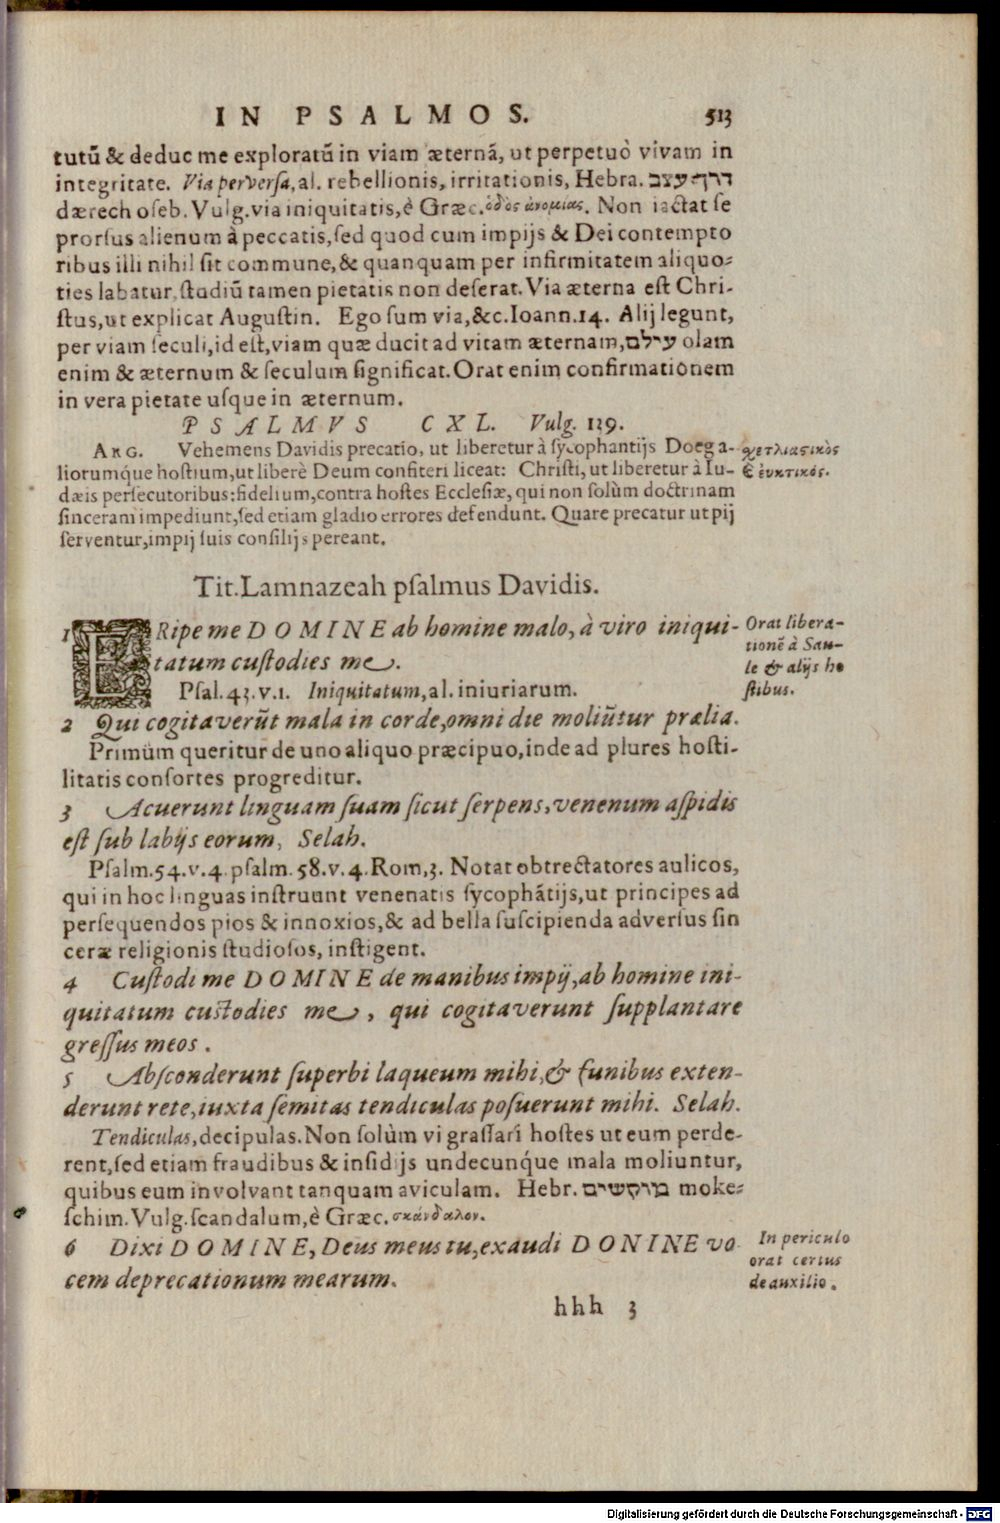 IN PSALMOS. 513
tutū & deduc me exploratū in viam æternā, ut perpetuò vivam in
integritate. Via perversa, al. rebellionis, irritationis, Hebra. דרך־עצב
dærech oseb. Vulg. via iniquitatis, è Græc. ὁδὸς ἀνομίας. Non iactat se
prorsus alienum à peccatis, sed quod cum impijs & Dei contempto
ribus illi nihil sit commune, & quanquam per infirmitatem aliquo-
ties labatur, studiū tamen pietatis non deserat. Via æterna est Chri-
stus, ut explicat Augustin. Ego sum via, &c. Ioann. 14. Alij legunt,
per viam seculi, id est, viam quæ ducit ad vitam æternam, עולם olam
enim & æternum & seculum significat. Orat enim confirmationem
in vera pietate usque in æternum.
PSALMVS CXL. Vulg. 139.
ARG. Vehemens Davidis precatio, ut liberetur à sycophantijs Doeg a-
liorumq́ue hostium, ut liberè Deum confiteri liceat: Christi, ut liberetur à Iu-
dæis persecutoribus: fidelium, contra hostes Ecclesiæ, qui non solùm doctrinam
sinceram impediunt, sed etiam gladio errores defendunt. Quare precatur ut pij
serventur, impij suis consilijs pereant.
χετλιαστικὸς
& εὐκτικός.
Tit. Lamnazeah psalmus Davidis.
1 ERipe me DOMINE ab homine malo, à viro iniqui-
tatum custodies me.
Psal. 43. v. 1. Iniquitatum, al. iniuriarum.
Orat libera-
tionē à Sau-
le & alijs ho
stibus.
2 Qui cogitaverūt mala in corde, omni die moliūtur prælia.
Primùm queritur de uno aliquo præcipuo, inde ad plures hosti-
litatis consortes progreditur.
3 Acuerunt linguam suam sicut serpens, venenum aspidis
est sub labijs eorum, Selah.
Psalm. 54. v. 4. psalm. 58. v. 4. Rom, 3. Notat obtrectatores aulicos,
qui in hoc linguas instruunt venenatis sycophātijs, ut principes ad
persequendos pios & innoxios, & ad bella suscipienda adversus sin
ceræ religionis studiosos, instigent.
4 Custodi me DOMINE de manibus impij, ab homine ini-
quitatum custodies me, qui cogitaverunt supplantare
gressus meos.
5 Absconderunt superbi laqueum mihi, & funibus exten-
derunt rete, iuxta semitas tendiculas posuerunt mihi. Selah.
Tendiculas, decipulas. Non solùm vi grassari hostes ut eum perde-
rent, sed etiam fraudibus & insidijs undecunq́ue mala moliuntur,
quibus eum involvant tanquam aviculam. Hebr. מוקשים moke-
schim. Vulg. scandalum, è Græc. σκάνδαλον.
6 Dixi DOMINE, Deus meus tu, exaudi DONINE vo
cem deprecationum mearum.
In periculo
orat certus
de auxilio.
hhh 3
Digitalisierung gefördert durch die Deutsche Forschungsgemeinschaft - DFG